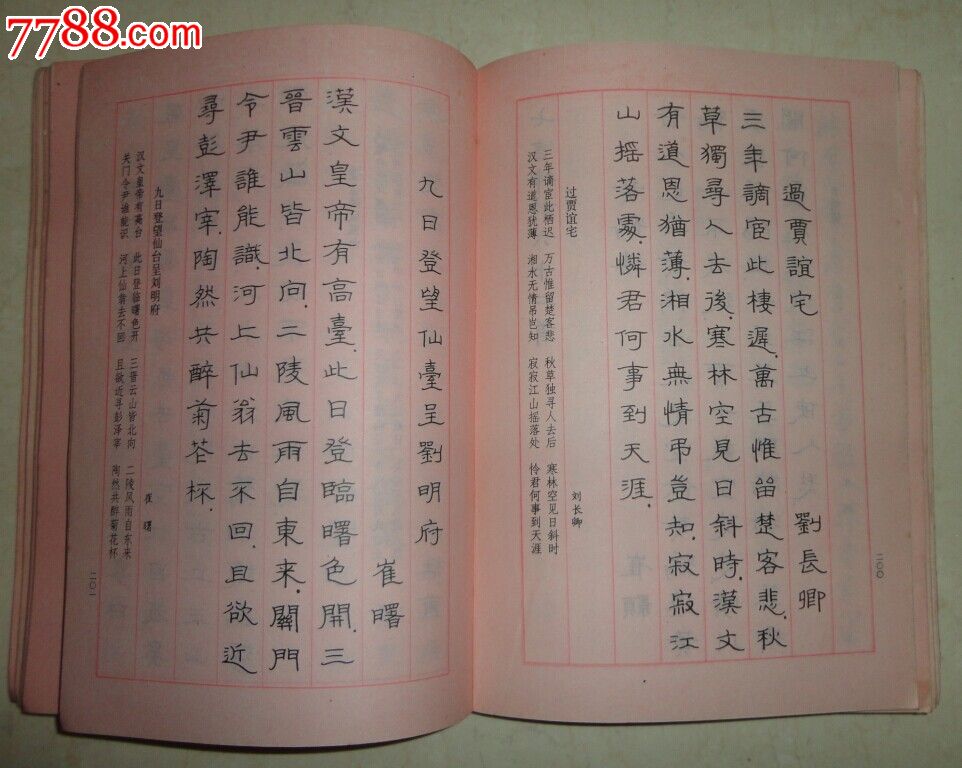 7788.com
二〇〇
過賈誼宅
劉長卿
三年謫宦此棲遲，萬古惟留楚客悲，秋
草獨尋人去後，寒林空見日斜時，漢文
有道恩猶薄，湘水無情弔豈知，寂寂江
山搖落處，憐君何事到天涯，
过贾谊宅
刘长卿
三年谪宦此栖迟 万古惟留楚客悲 秋草独寻人去后 寒林空见日斜时
汉文有道恩犹薄 湘水无情吊岂知 寂寂江山摇落处 怜君何事到天涯
九日登望仙臺呈劉明府
崔曙
漢文皇帝有高臺，此日登臨曙色開，三
晉雲山皆北向，二陵風雨自東來，關門
令尹誰能識，河上仙翁去不回，且欲近
尋彭澤宰，陶然共醉菊花杯，
九日登望仙台呈刘明府
崔曙
汉文皇帝有高台 此日登临曙色开 三晋云山皆北向 二陵风雨自东来
关门令尹谁能识 河上仙翁去不回 且欲近寻彭泽宰 陶然共醉菊花杯
二〇一